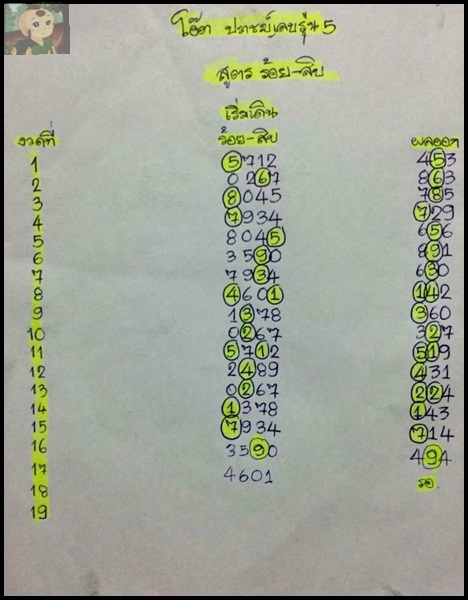 ปราชญ์เลขรุ่น 5
สูตร ร้อย-สิบ
เริ่มเดิน
งวดที่ ร้อย-สิบ ผลออก
1 5712 453
2 0267 863
3 8045 785
4 7934 729
5 8045 656
6 3590 891
7 7934 630
8 4601 142
9 1378 360
10 0267 327
11 5712 519
12 2489 431
13 0267 224
14 1378 143
15 7934 714
16 3590 494
17 4601 รอ
18
19